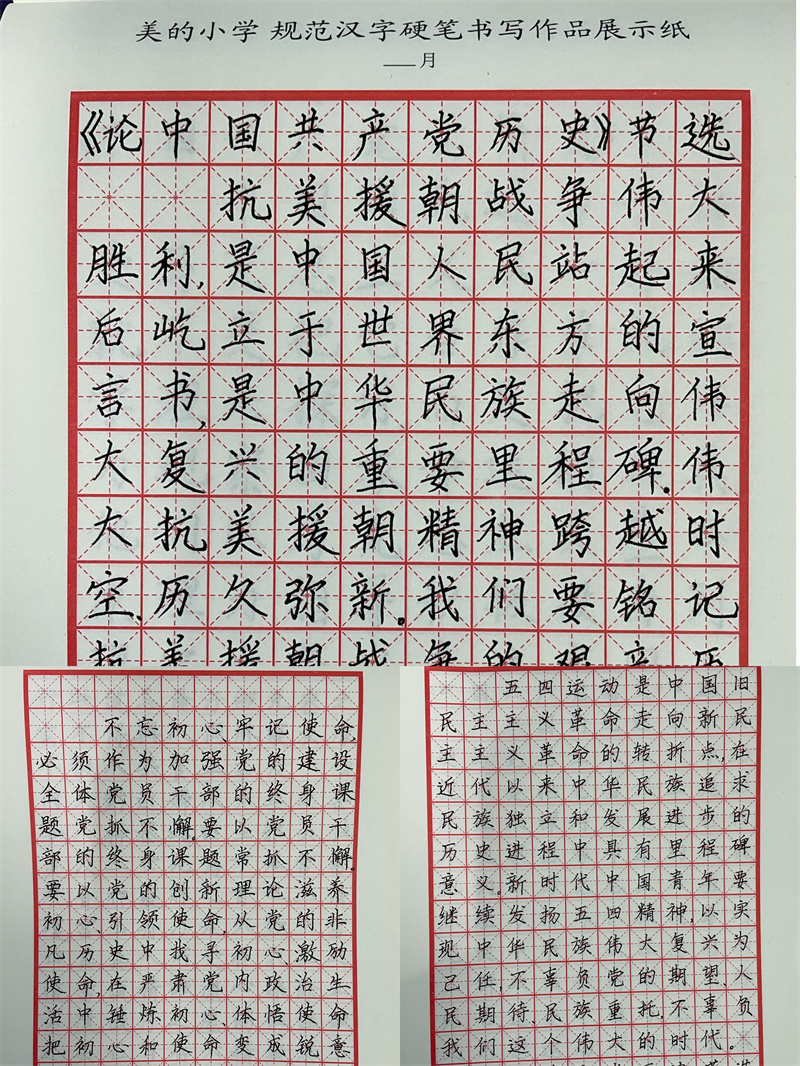 美的小学 规范汉字硬笔书写作品展示纸
——月
《论中国共产党历史》节选
抗美援朝战争伟大
胜利，是中国人民站起来
后屹立于世界东方的宣
言书，是中华民族走向伟
大复兴的重要里程碑。伟
大抗美援朝精神跨越时
空、历久弥新。我们要铭记
抗美援朝战争的艰辛历
不忘初心、牢记使命，
必须作为加强党的建设
全体党员干部的终身课
题党抓不懈。要以党员干
部的终身课题常抓不懈。
要以党的创新理论滋养
初心、引领使命，从党的非
凡历史中找寻初心、激励
使命，在严肃党内政治生
活中锤炼初心、体悟使命
把初心和使命变成锐意
五四运动是中国旧
民主主义革命走向新民
主主义革命的转折点，在
近代以来中华民族追求
民族独立和发展进步的
历史进程中具有里程碑
意义。新时代中国青年要
继续发扬五四精神，以实
现中华民族伟大复兴为
己任，不辜负党的期望、人
民期待、民族重托，不辜负
我们这个伟大的时代。